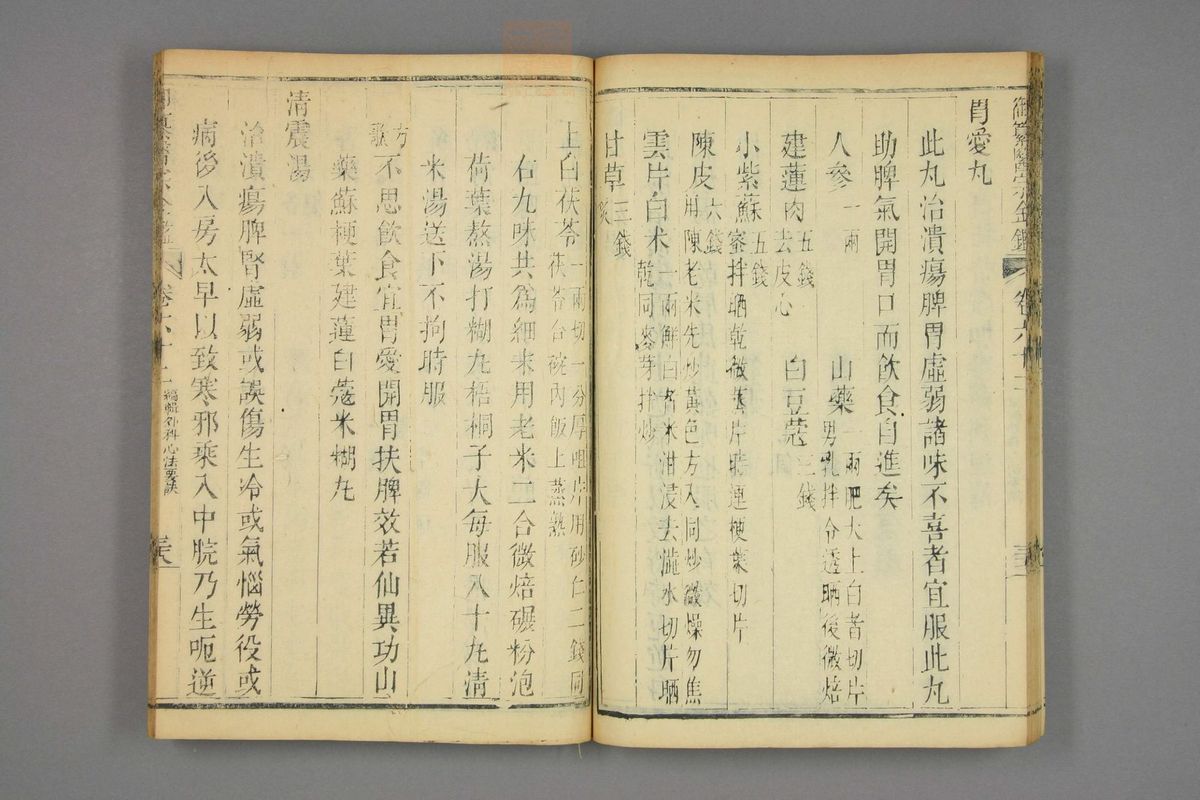 御纂醫宗金鑑 卷六十二
胃愛丸
此丸治潰瘍脾胃虛弱諸味不喜者宜服此丸
助脾氣開胃口而飲食自進矣
人參一兩 山藥一兩肥大上白者切片男乳拌令透晒後微焙
建蓮肉五錢去皮心 白豆蔻三錢
小紫蘇五錢蜜拌晒乾微蒸片時連梗葉切片
陳皮六錢用陳老米先炒黃色方入同炒微燥勿焦
雲片白术一兩鮮白者米泔浸去澁水切片晒乾同麥芽拌炒
甘草三錢炙
上白茯苓一兩切一分厚咀片用砂仁二錢同茯苓合碗內飯上蒸熟
右九味共爲細末用老米二合微焙碾粉泡
荷葉熬湯打糊丸梧桐子大每服八十丸清
米湯送下不拘時服
方歌不思飲食宜胃愛開胃扶脾效若仙異功山
藥蘇梗葉建蓮白蔻米糊丸
清震湯
治潰瘍脾腎虛弱或誤傷生冷或氣惱勞役或
病後入房太早以致寒邪乘入中脘乃生呃逆
卷六十二 編輯外科心法要訣